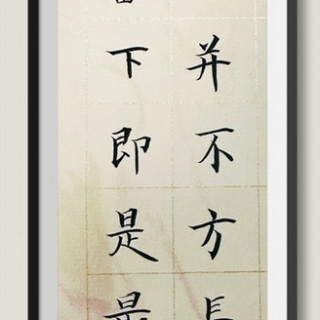 并不方長
下即是最